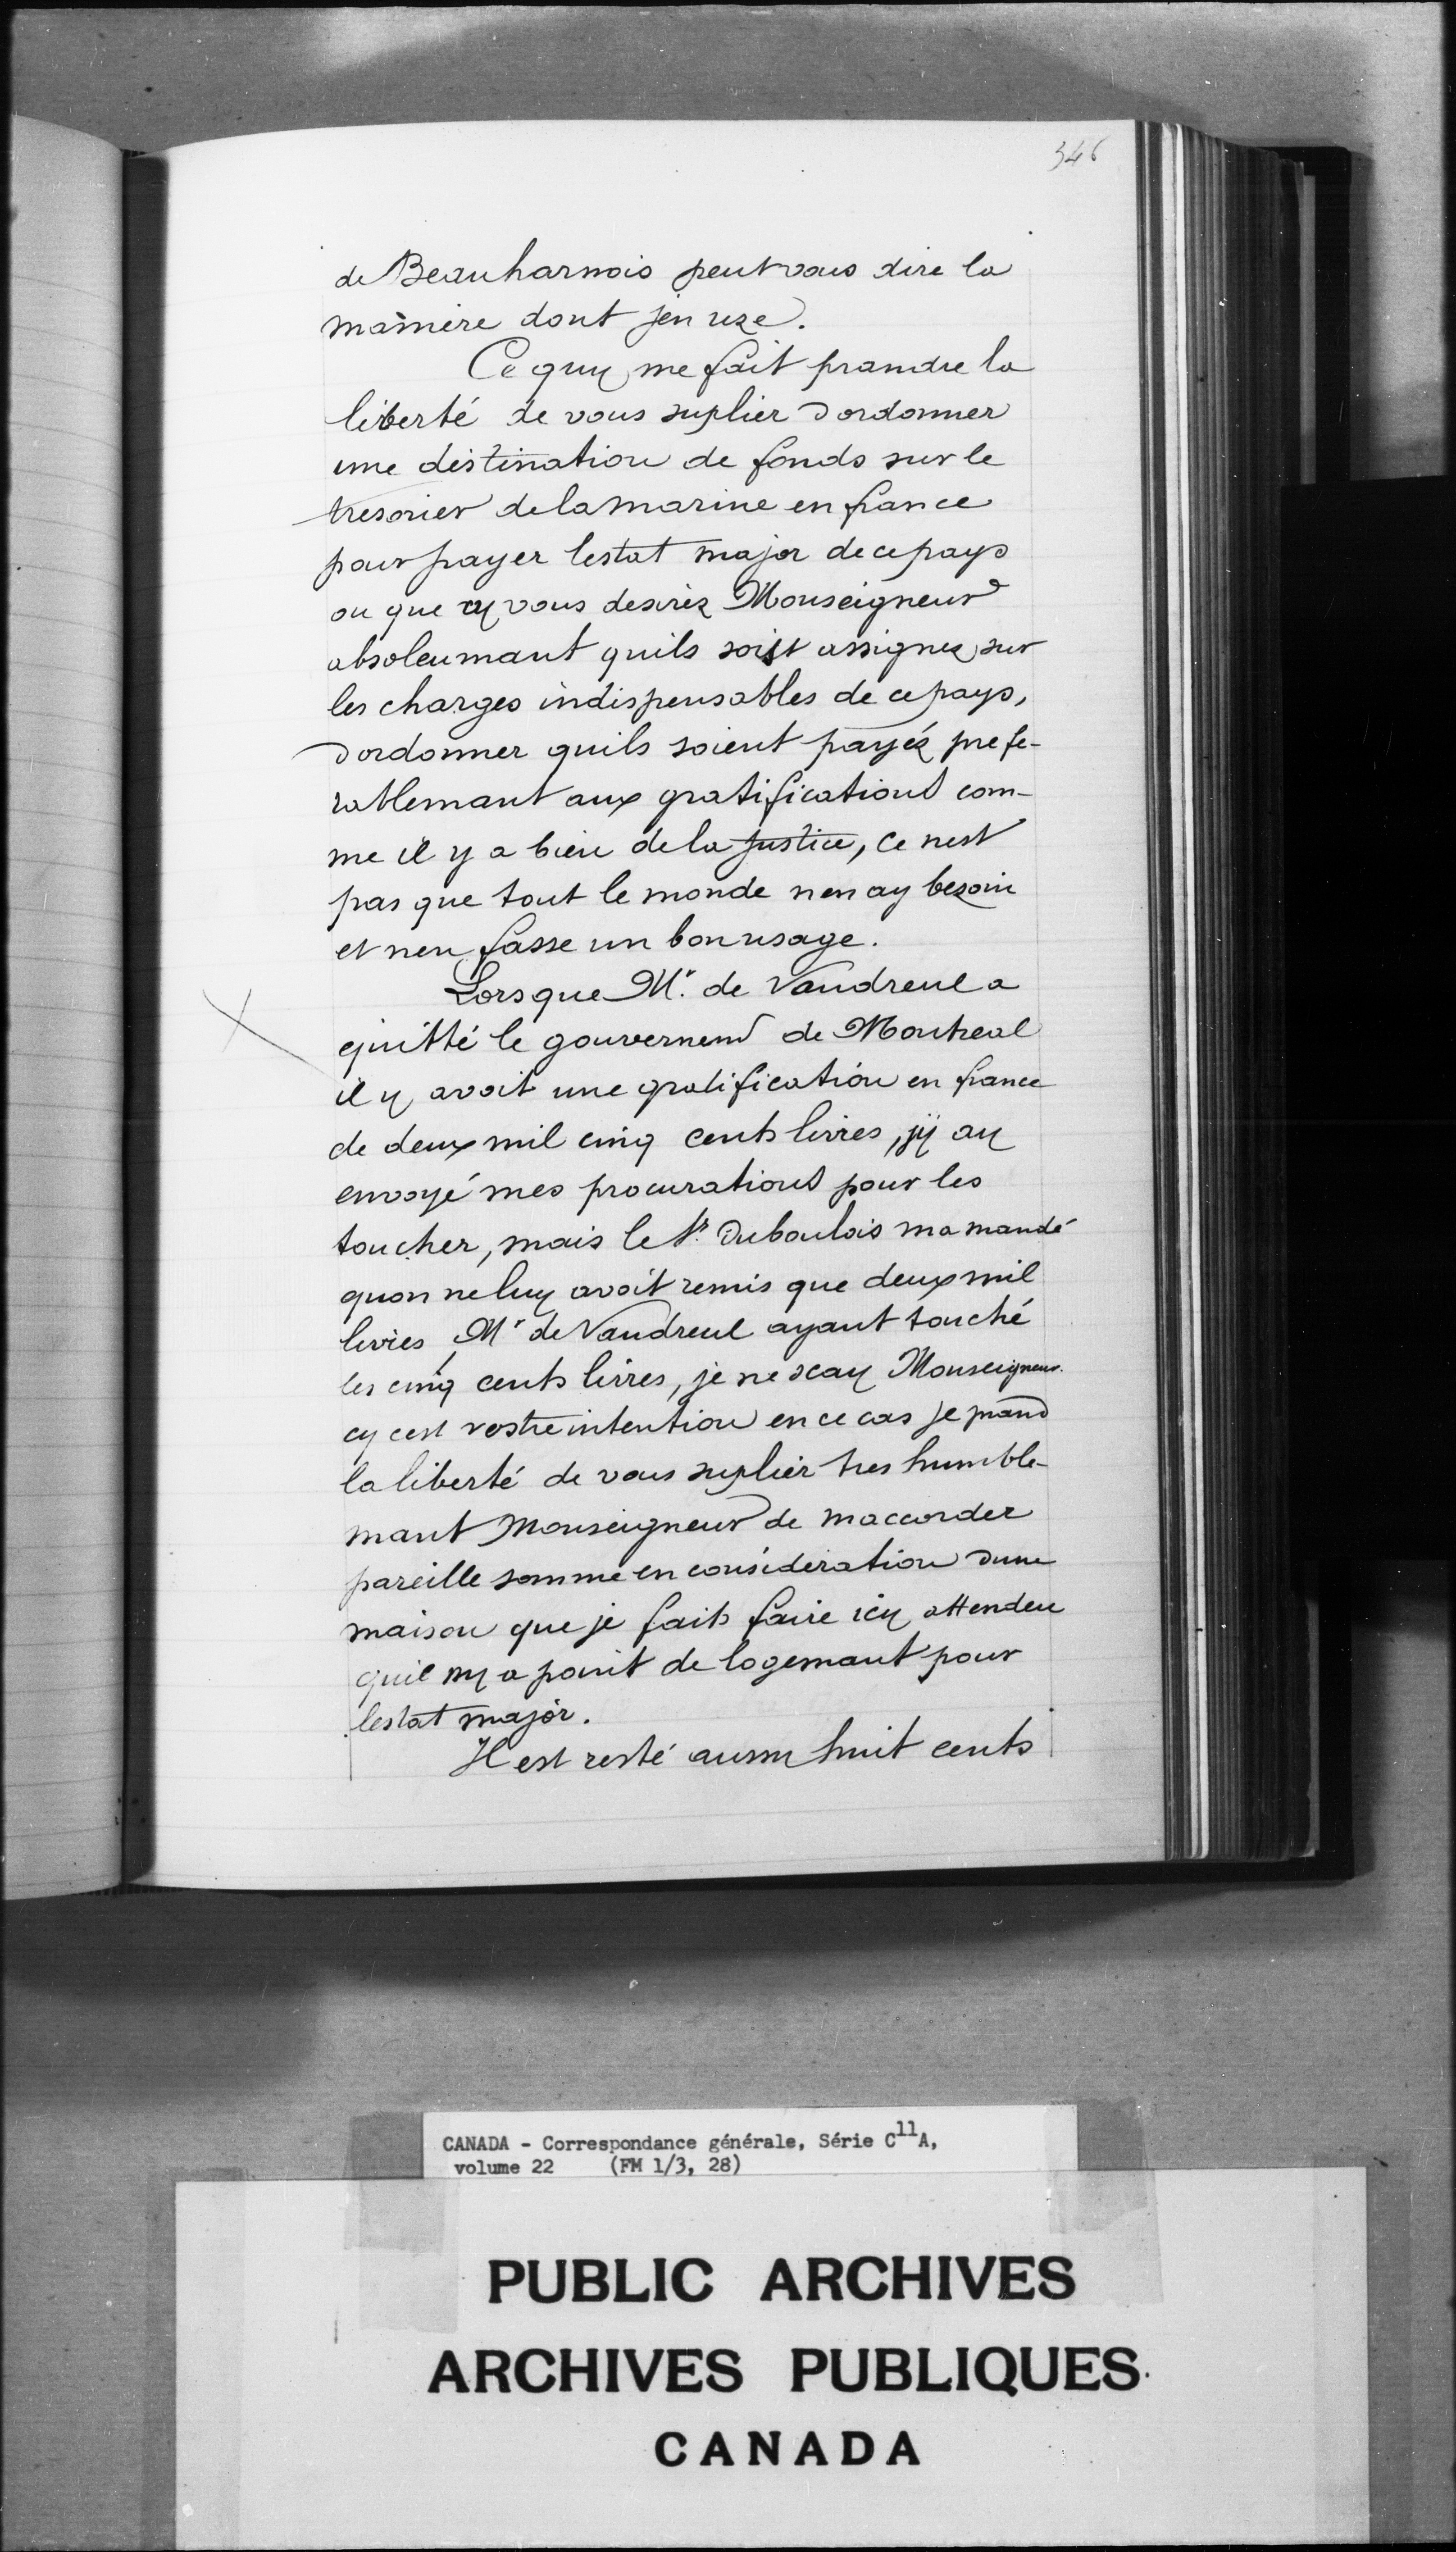 346
de Beauharnois peut vous dire la
maniere dont jen uze.
Ce quy me fait prandre la
liberté de vous suplier dordonner
une destination de fonds sur le
tresorier de la marine en france
pour payer lestat major de ce pays
ou que cy vous desirez Monseigneur
absoleumant quils soist assignez sur
les charges indispensables de ce pays,
dordonner quils soient payéz prefe-
rablemant aux gratifications com-
me il y a bien de la justice, ce nest
pas que tout le monde nen ay bezoin
et nen fasse un bon usage.
Lorsque Mr. de Vaudreul a
quitté le gouvernemt de Montreal
il y avoit une gratification en france
de deux mil cinq cents livres, jÿ ay
envoyé mes procurations pour les
toucher, mais le Sr. Duboulois ma mandé
quon ne luy avoit remis que deux mil
livres Mr de Vaudreul ayant touché
les cinq cents livres, je ne scay Monseigneur
cy cest vostre intention en ce cas je prand
la liberté de vous suplier tres humble-
mant Monseigneur de maccorder
pareille somme en consideration dune
maison que je faits faire icy attendeu
quil ny a point de logemant pour
lestat major.
Il est resté aussy huit cents
CANADA - Correspondance générale, Série C11A,
volume 22 (FM 1/3, 28)
PUBLIC ARCHIVES
ARCHIVES PUBLIQUES
CANADA